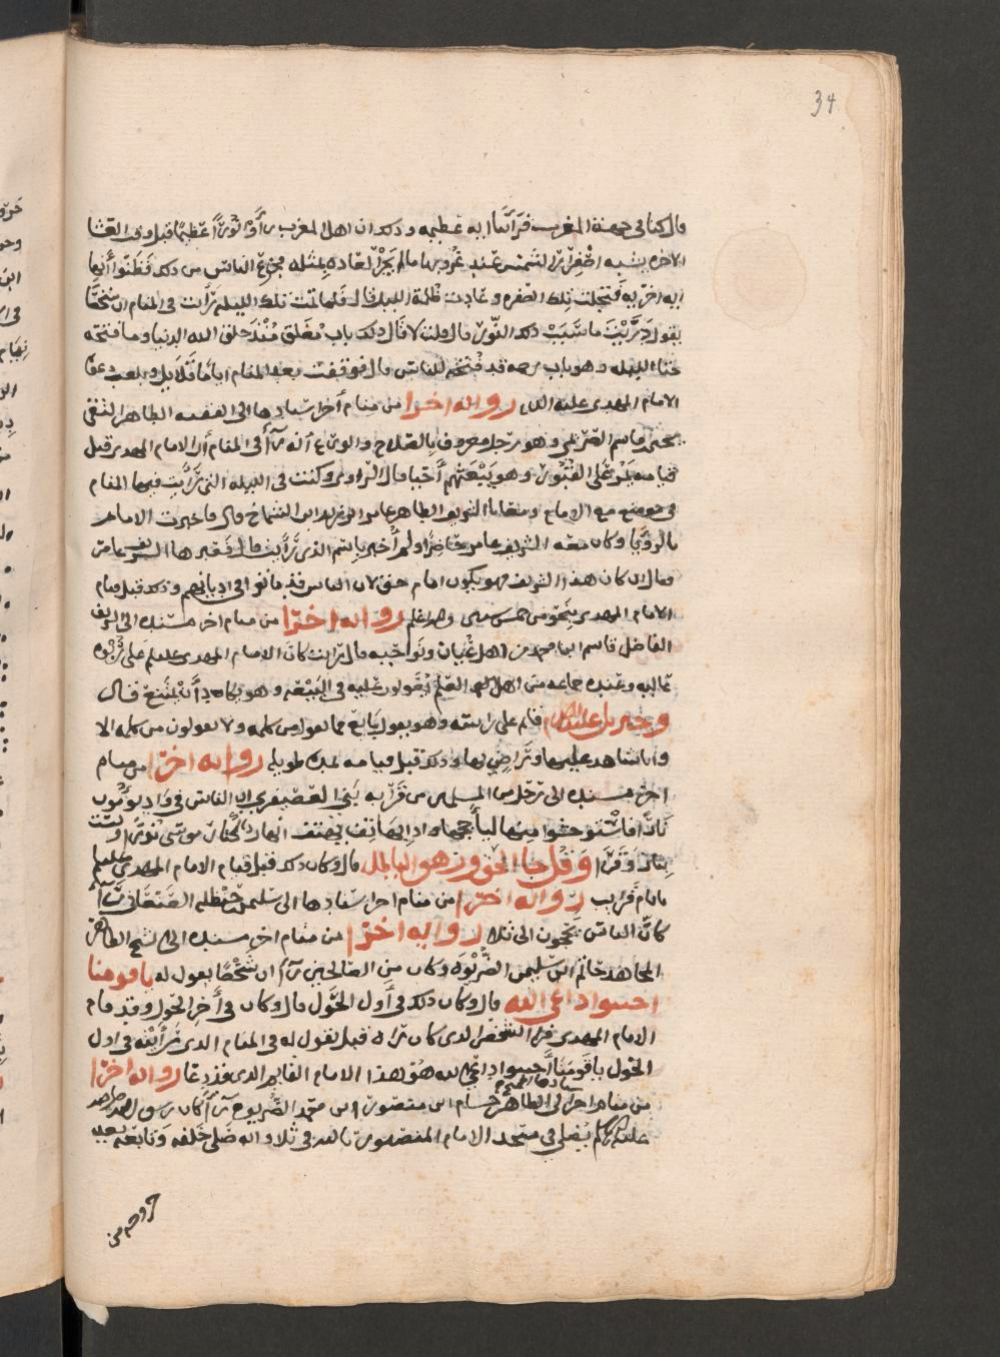 34
قال كنا في جهة المغرب فرأينا اية عظيمه وذلك ان اهل المغرب رأوا نورًا عظيمًا قبل وقت العشا
الاخره يشبه اصفرار الشمس عند غروبها مالم تجر العاده بمثله ففزع الناس من ذلك فظنوا أنها
ايه اخر يه فتجلت تلك الصفره وعادت ظلمة الليل قال فلما نمت تلك الليله رأيت في المنام ان شخصًا
يقول دريت ما سبب ذلك النور قال قلت لا قال ذلك باب مغلق منذ خلق الله الدنيا وما فتحه
حتا الليله وهو باب رحمه قد فتحه للناس قال فوقفت بعد المنام اياما قلايل وبلغت دعوة
الامام المهدي عليه السلم روايه اخرا من منام أخر اسنادها الى الفقيه الطاهر التقي
يحيى قاسم وهو رجل معروف بالصلاح والورع أنه رأى في المنام أن الامام المهدي قبل
قيامه يمر على القبور وهو يبعثهم أحيا قال الراوي وكنت في الليله التي رأيت فيها المنام
في موضع مع الامام ومعنا الشريف الطاهر عامر ابن الشماخ قال فاخبرت الامام
بالرؤيا وكان معه الشريف عامر حاضرا ولم أخبر باسم الذي رأيت قال ففسرها الشريف عامر
وقال ان كان هذا الشريف فهو يكون امام حق لان الناس قد ماتوا في اديانهم وذلك قبل قيام
الامام المهدي بنحو من خمس سنين والله اعلم روايه اخرا من منام اخر مسنده الى الشريف
الفاضل قاسم ابن محمد من اهل غُبان ونواحيه قال رأيت كان الامام المهدي عليلم على
وعنده جماعه من اهل العلم يقولون عليه في البيعه وهو يكاد أن يمتنع قال
وجبريل عليه السلم قايم على راسه وهو يقول بايع فما تقولون من كلمه ولا يقولون من كلمه الا
وانا شاهد عليها وراض بها وذلك قبل قيامه بمده طويله روايه اخرا من منام
اخر مسنده الى رجل من المسلمين من قرية بني ان الناس في واد يؤمون
نارًا فاستوحشوا منها واذا بهاتف يهتف انها نار موسى نورًا وليست
بنار وقرا وقل جا الحق وزهق الباطل قال وكان ذلك قبل قيام الامام المهدي عليلم
بايام قرايب روايه اخرا من منام اخر اسنادها الى سليمن حنظله الصنعاني رأى
كان الناس يحجون الى ثلا روايه اخرا من منام اخر مسنده الى الشيخ الطاهر
المجاهد حاتم ابن سليمن وكان من الصالحين رأى ان شخصًا يقول له ياقومنا
اجيبوا داعي الله قال وكان ذلك في أول الحول قال وكان في أخر الحول وقد قام
الامام المهدي فرأى الشخص الذي كان رآه قبل يقول له في المنام الذي رأيته في اول
الحول ياقومنا أجيبوا داعي الله هو هذا الامام القايم الذي قد دعا روايه اخرا
من منام اخر الى الطاهر حسام ابن منصور ابن محمد رأى كان رسول الله صلى الله
عليه وآله وسلم يُصلي في مسجد الامام المنصور بالله في ثلا وانه صلى خلفه وتابعه بعد